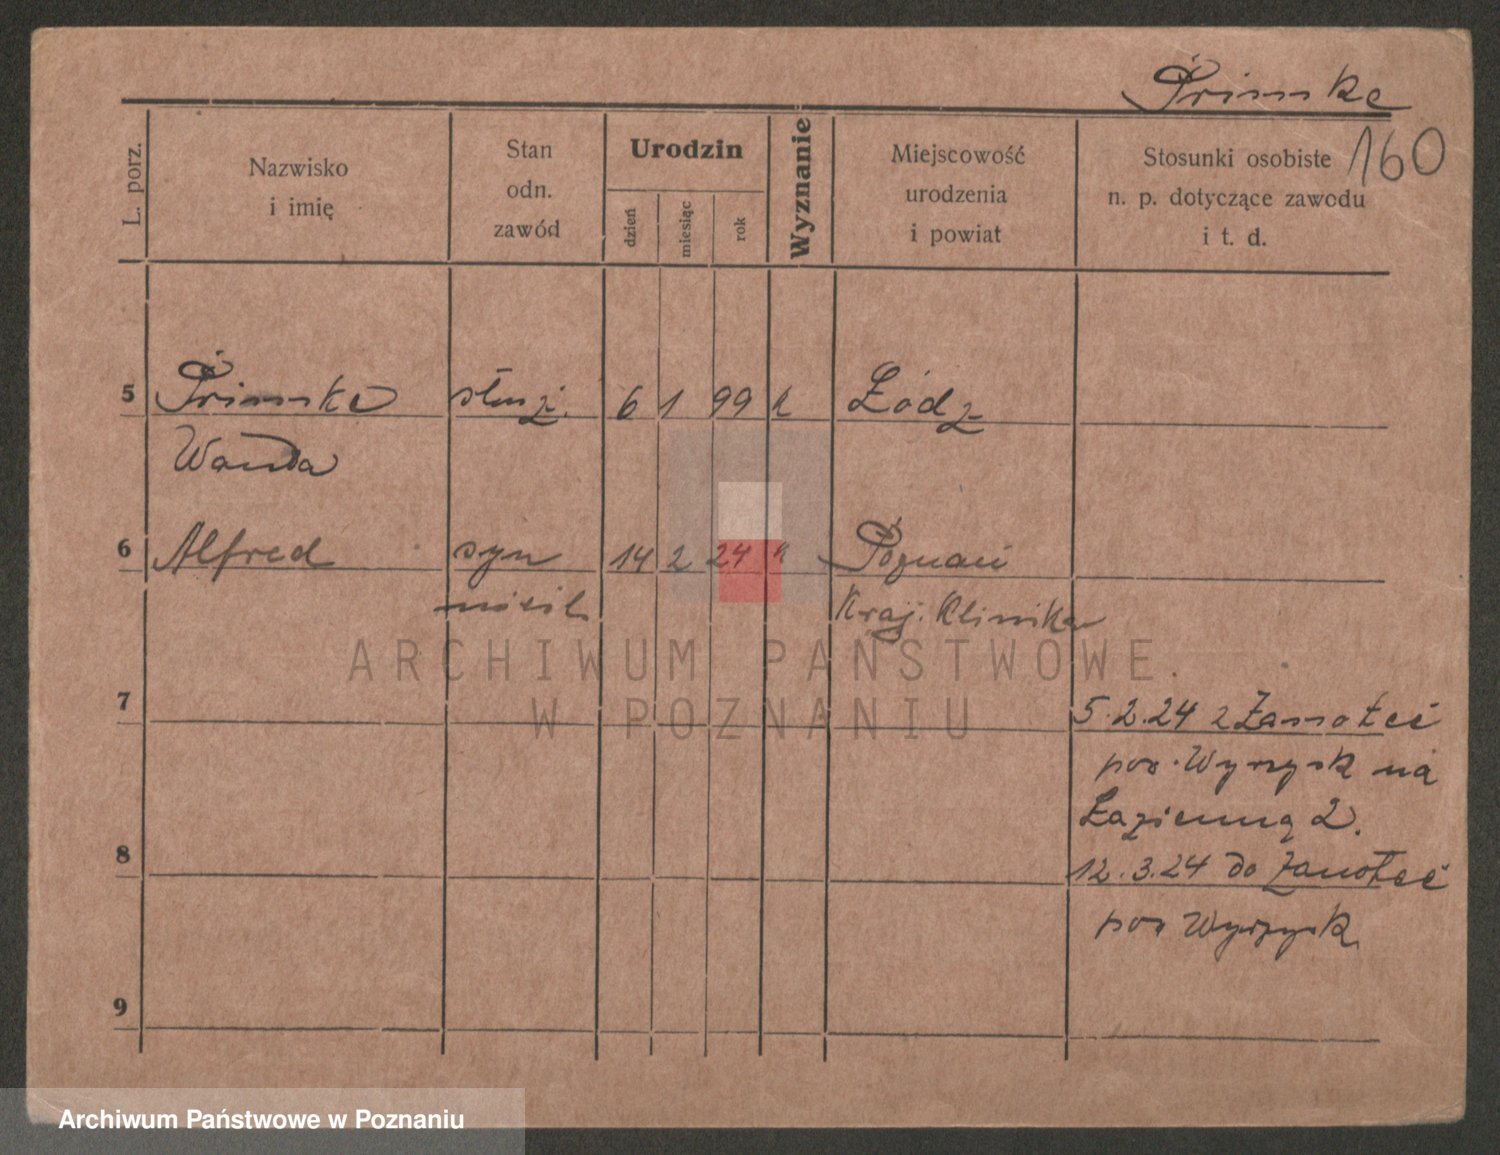 Primke
160
L. porz.
Nazwisko
i imię
Stan
odn.
zawód
Urodzin
dzień
miesiąc
rok
Wyznanie
Miejscowość
urodzenia
i powiat
Stosunki osobiste
n. p. dotyczące zawodu
i t. d.
5 Primke służ. 6 1 99 k Łódz
Wanda
6 Alfred syn 14 2 24 k Poznań
nieśl Kraj. Klinika
ARCHIWUM PAŃSTWOWE
W POZNANIU
7 5.2.24 z
pow. Wyrzysk na
Łazienną 2.
8 12.3.24 do
pow Wyrzysk
9
Archiwum Państwowe w Poznaniu